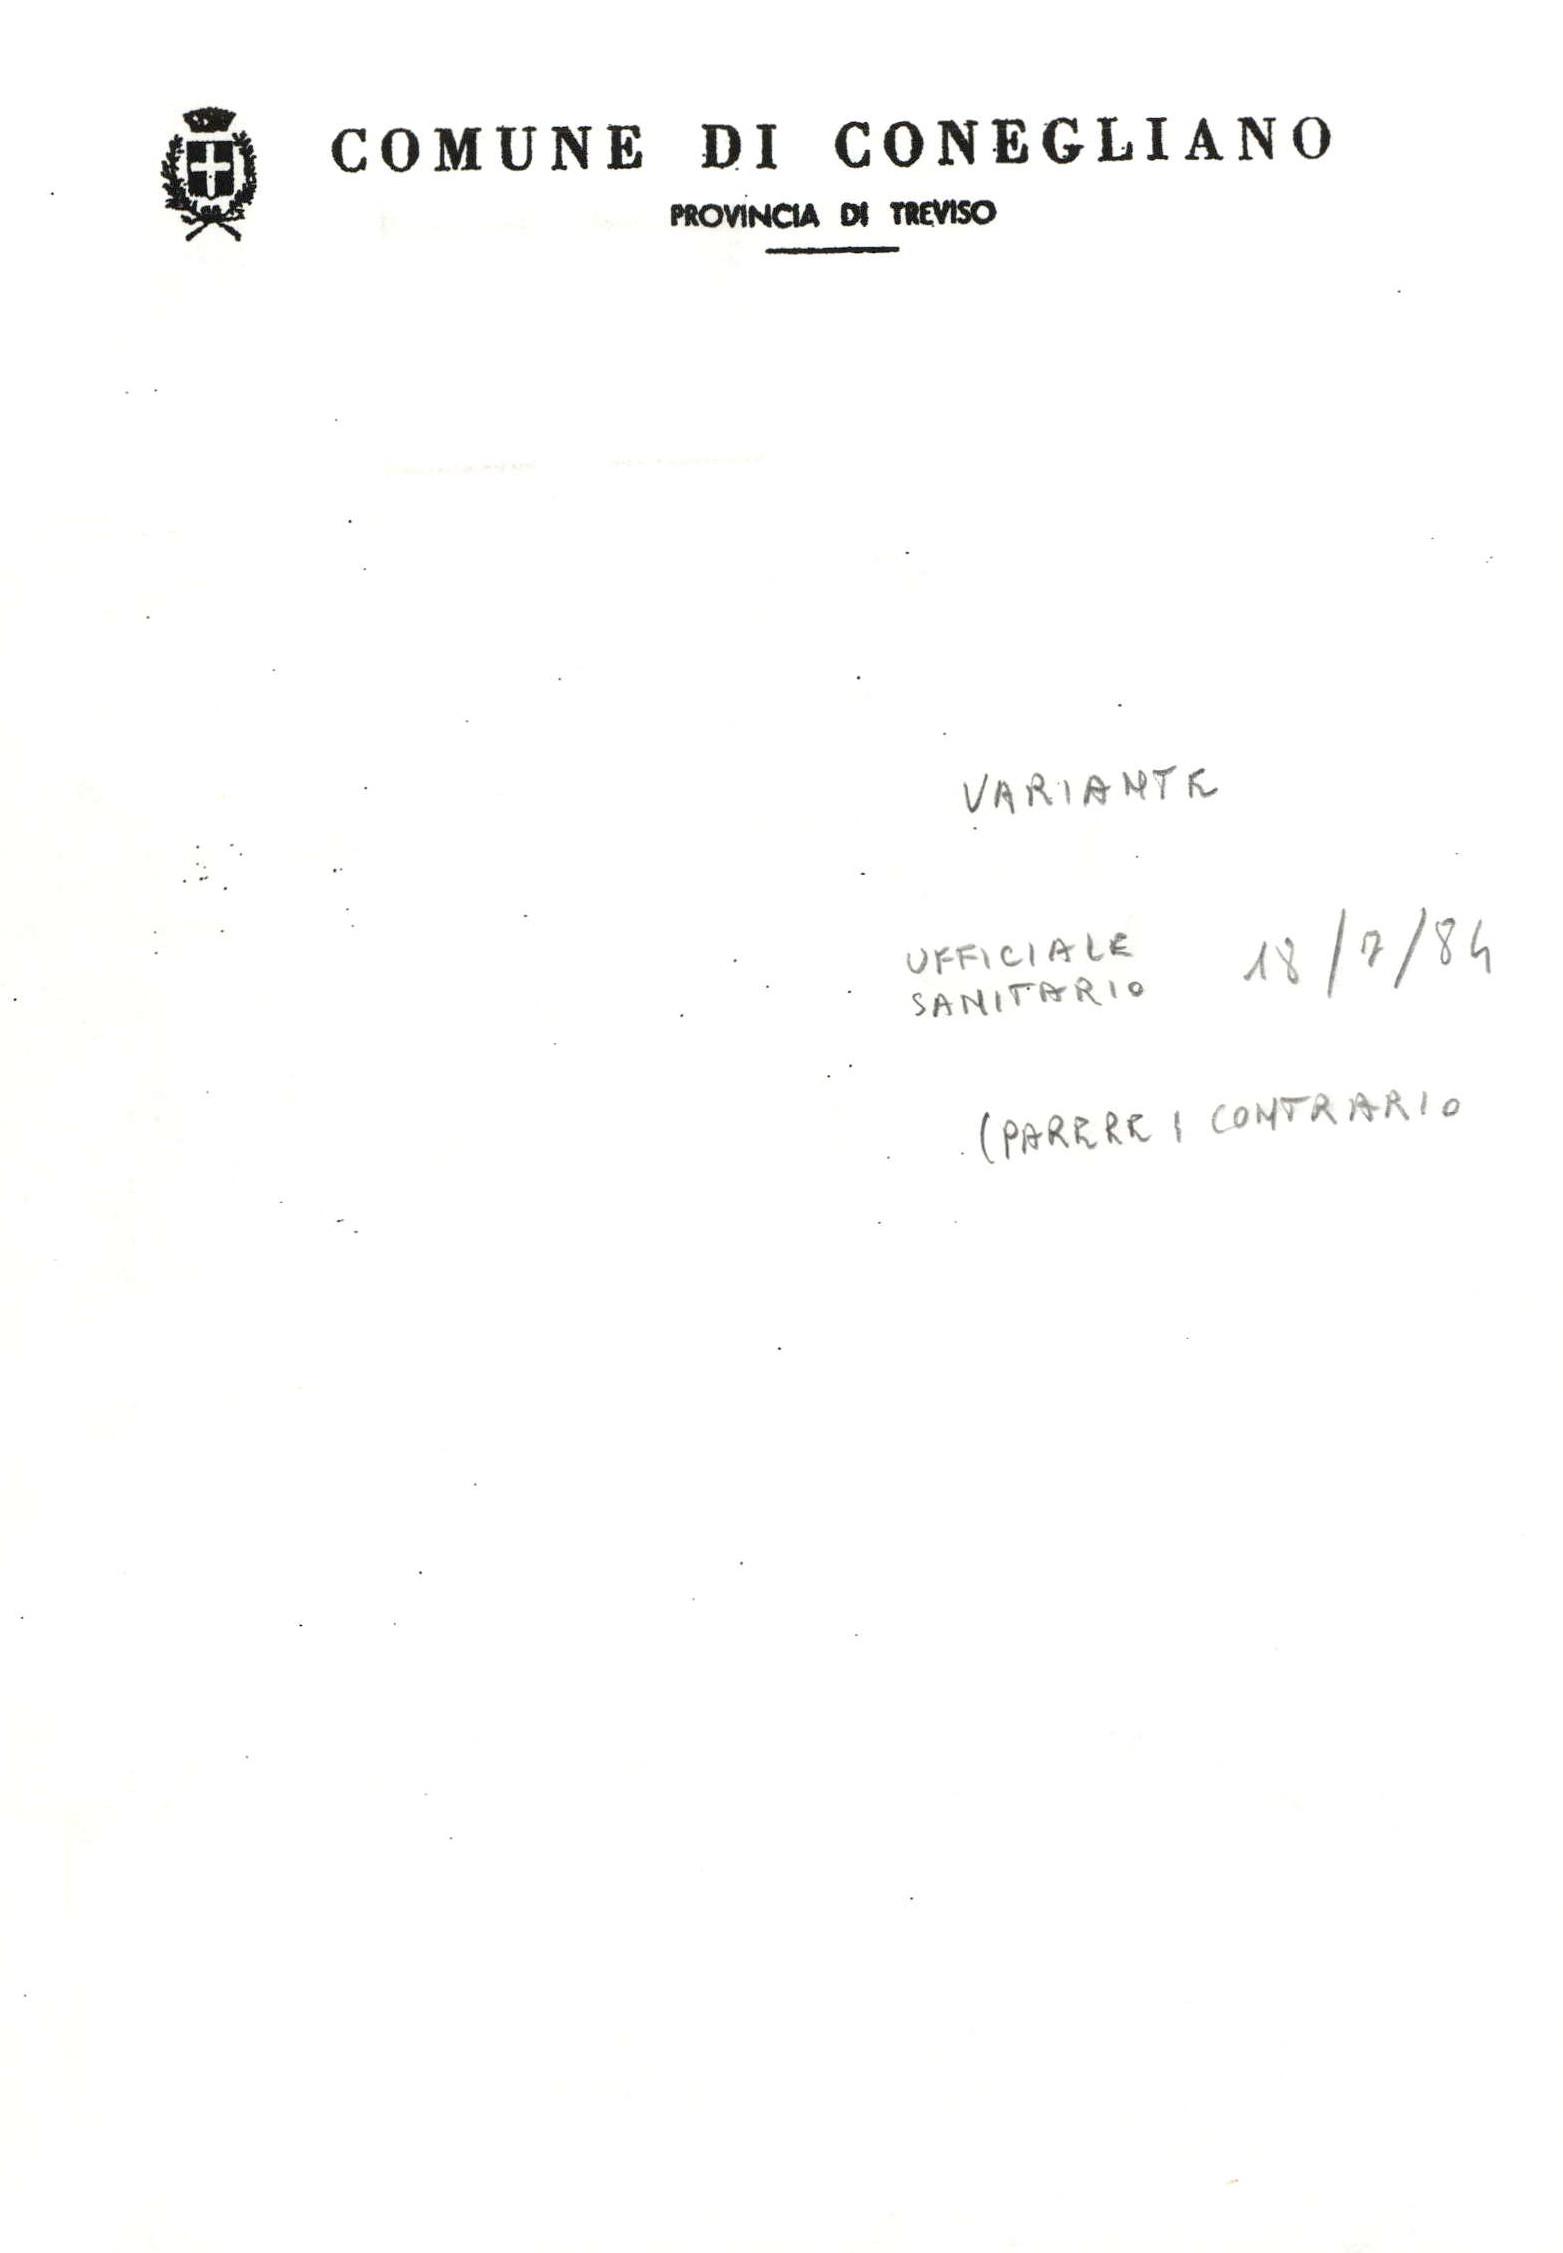 COMUNE DI CONEGLIANO
PROVINCIA DI TREVISO
VARIANTE
UFFICIALE
SANITARIO 18/7/84
(PARERE : CONTRARIO